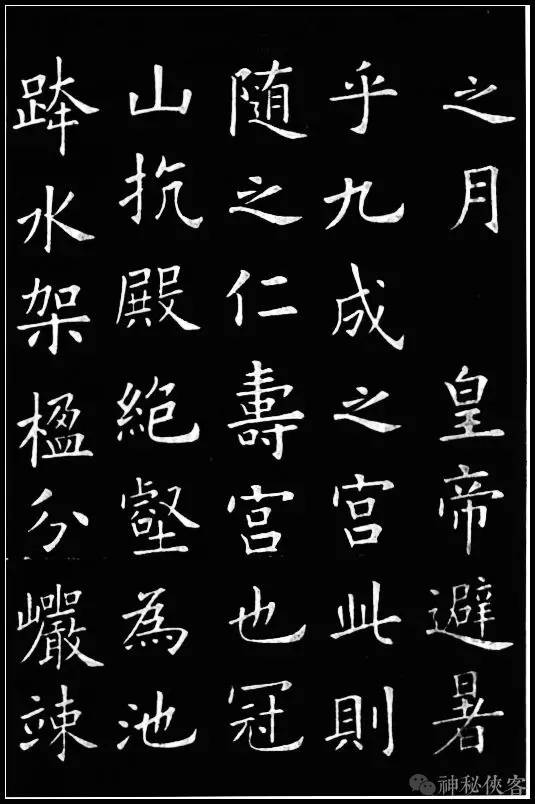 之月 皇帝避暑
乎九成之宮此則
随之仁壽宮也冠
山抗殿絕壑為池
跨水架楹分巖竦
神秘俠客